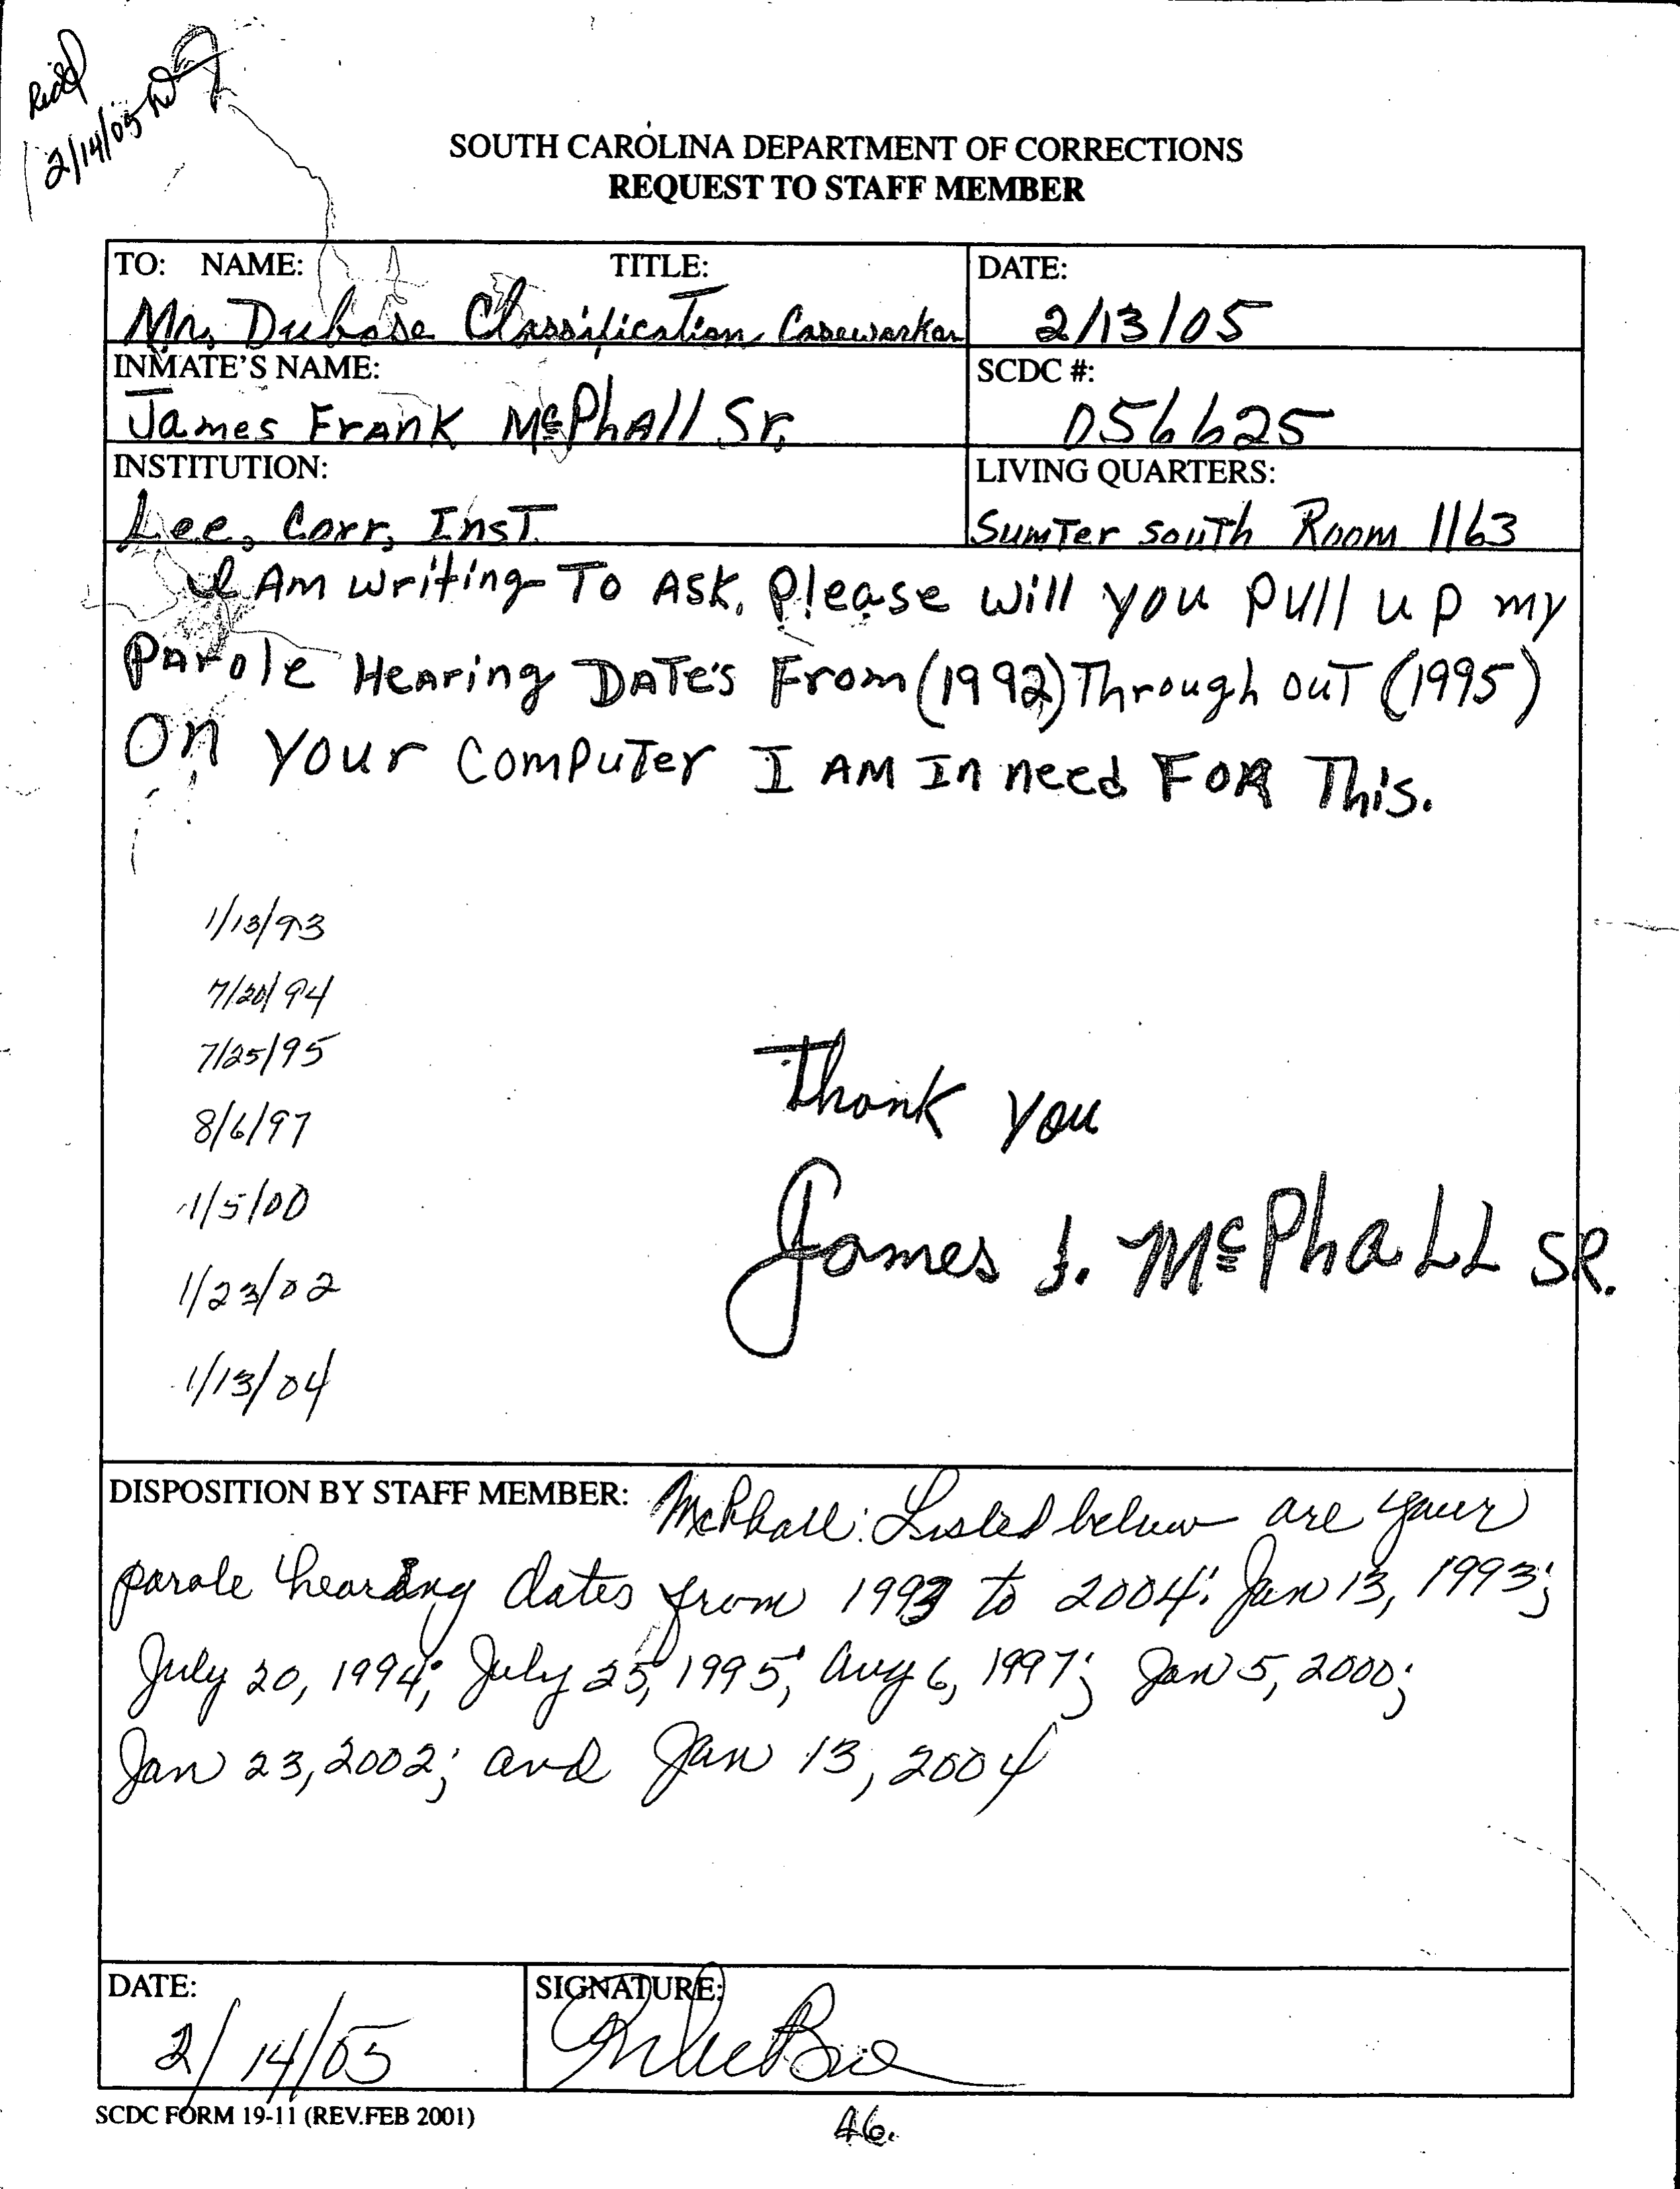 Rec'd
2/14/05
SOUTH CAROLINA DEPARTMENT OF CORRECTIONS
REQUEST TO STAFF MEMBER
TO: NAME: TITLE: DATE:
Mrs. Dubose Classification Caseworker 2/13/05
INMATE'S NAME: SCDC #:
James Frank McPhAll Sr. 056625
INSTITUTION: LIVING QUARTERS:
Lee, Corr, InsT. SumTer South Room 1163
I Am writing To Ask, Please will you Pull up my
Parole Hearing DATe's From (1992) Through ouT (1995)
On Your CompuTer I AM In need FOR This.
1/13/93
7/20/94
7/25/95
Thank you
8/6/97
1/5/00
James F. McPhaLL SR.
1/23/02
1/13/04
DISPOSITION BY STAFF MEMBER: McPhall: Listed below are your
parole hearing dates from 1993 to 2004: Jan 13, 1993;
July 20, 1994; July 25, 1995; Aug 6, 1997; Jan 5, 2000;
Jan 23, 2002; and Jan 13, 2004
DATE: SIGNATURE:
2/14/05
SCDC FORM 19-11 (REV.FEB 2001) 46.